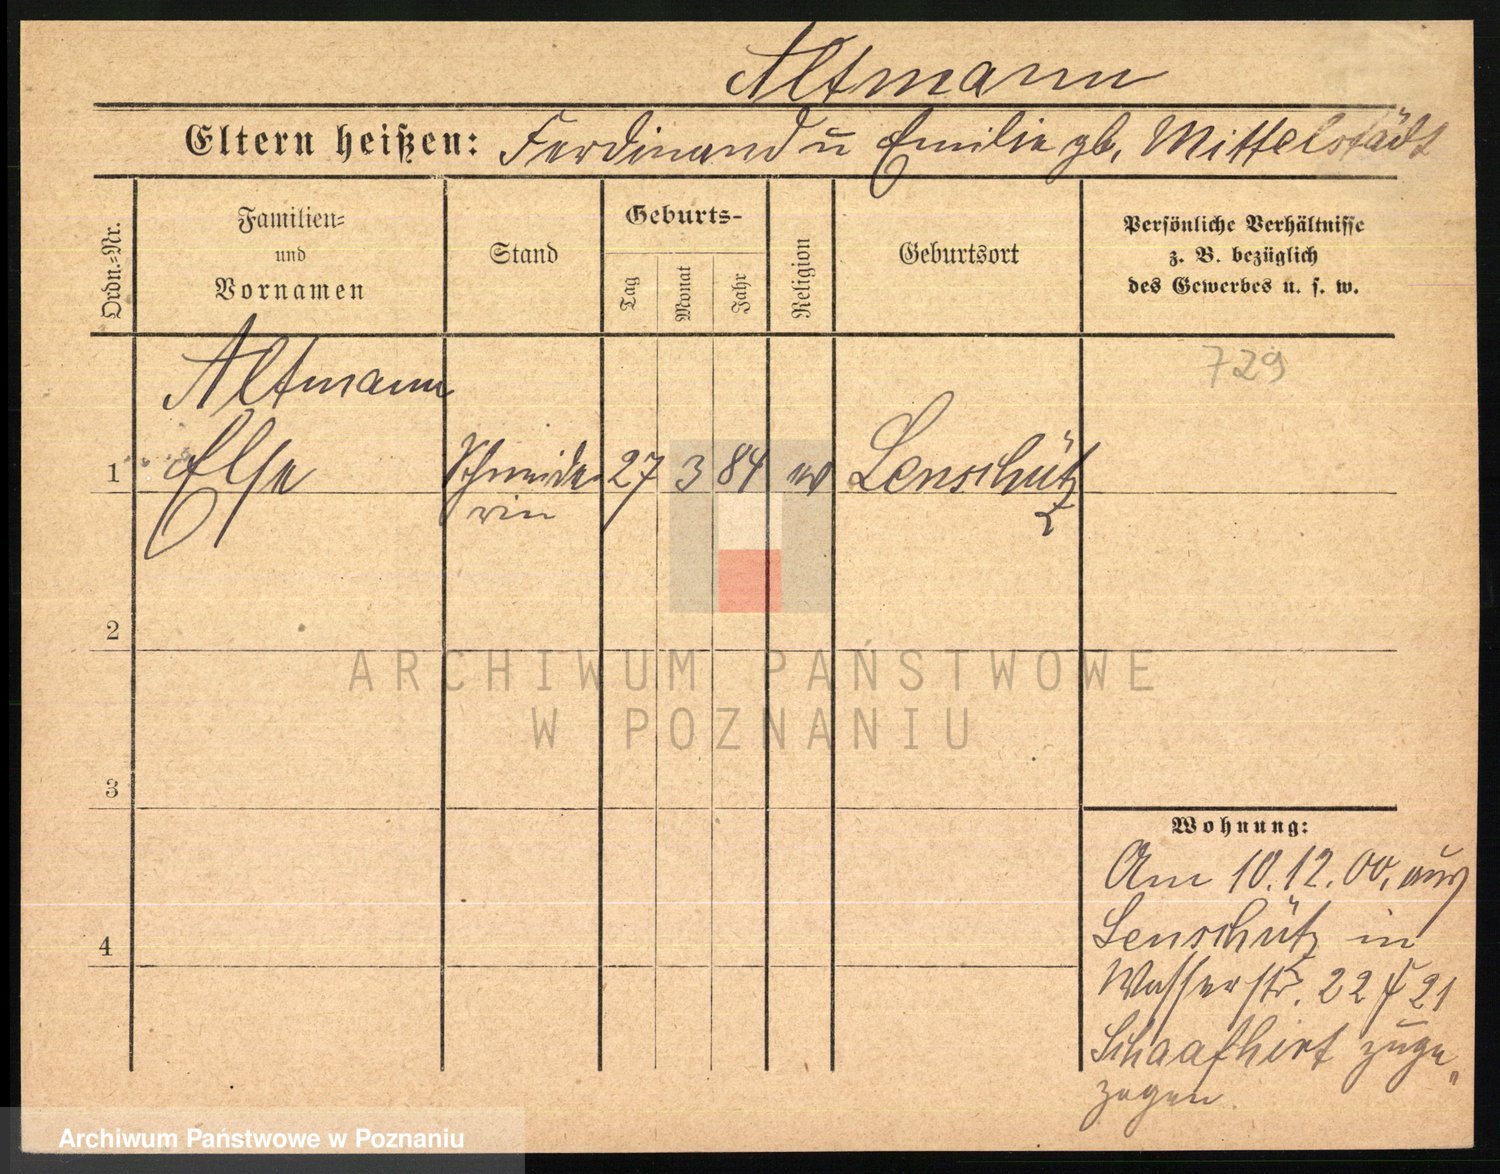 Altmann
Eltern heißen: Ferdinand u Emilie gb. Mittelstädt
Ordn.=Nr.
Familien=
und
Vornamen
Stand
Geburts-
Tag
Monat
Jahr
Religion
Geburtsort
Persönliche Verhältnisse
z. B. bezüglich
des Gewerbes u. s. w.
729
Altmann
1 Else Schneide 27 3 84 Lenschütz
rin
2
ARCHIWUM PAŃSTWOWE
W POZNANIU
3
Wohnung:
Am 10.12.00. aus
Lenschütz in
4
Wasserstr. 22 21
Schaafhirt zuge„
zogen.
Archiwum Państwowe w Poznaniu